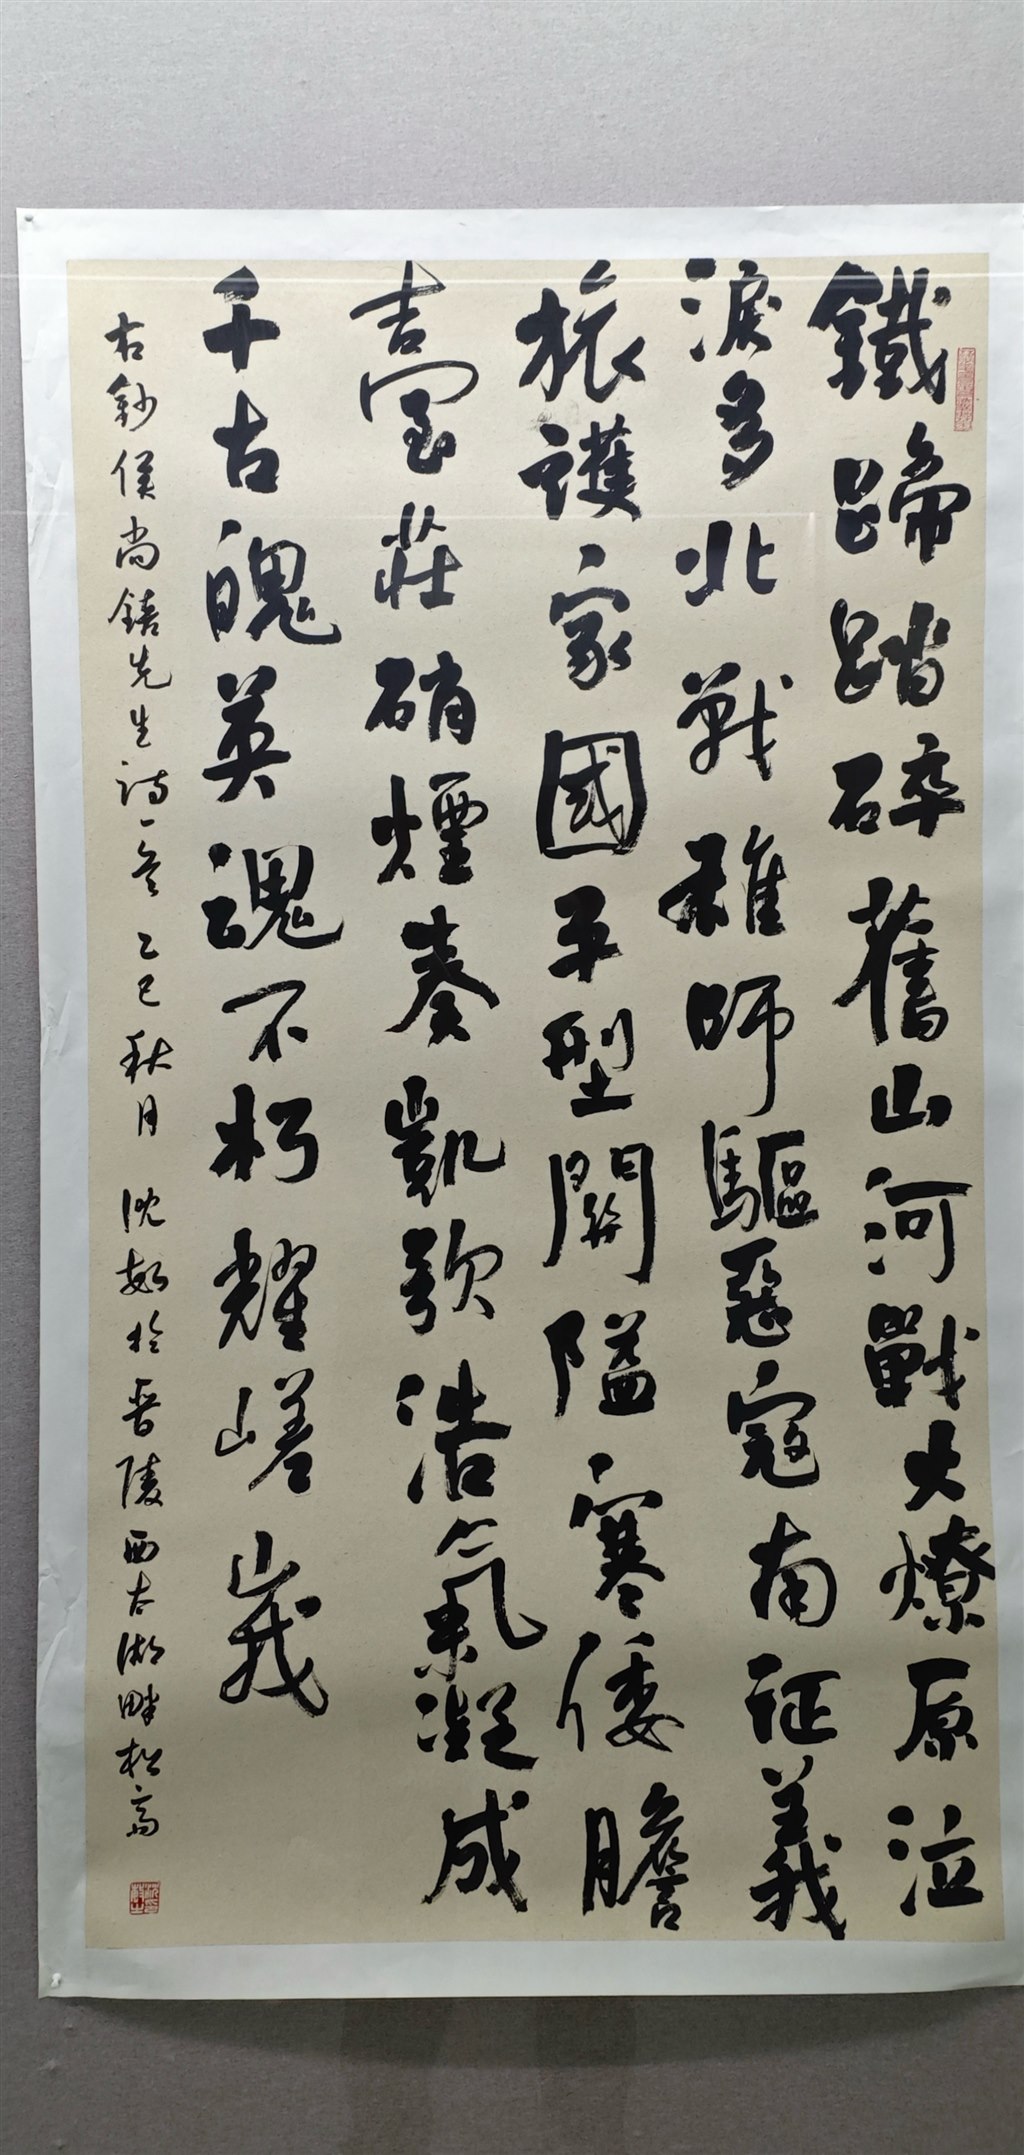 鐵蹄踏碎舊山河戰火燎原泣
淚多北戰雄師驅惡寇南征義
旅護家國平型關隘寒倭膽
臺莊硝煙奏凱歌浩氣凝成
千古魄英魂不朽耀嵯峨
右鈔侯尚鐃先生詩一首 乙巳秋月 沈敏於晉陵西太湖畔松齋